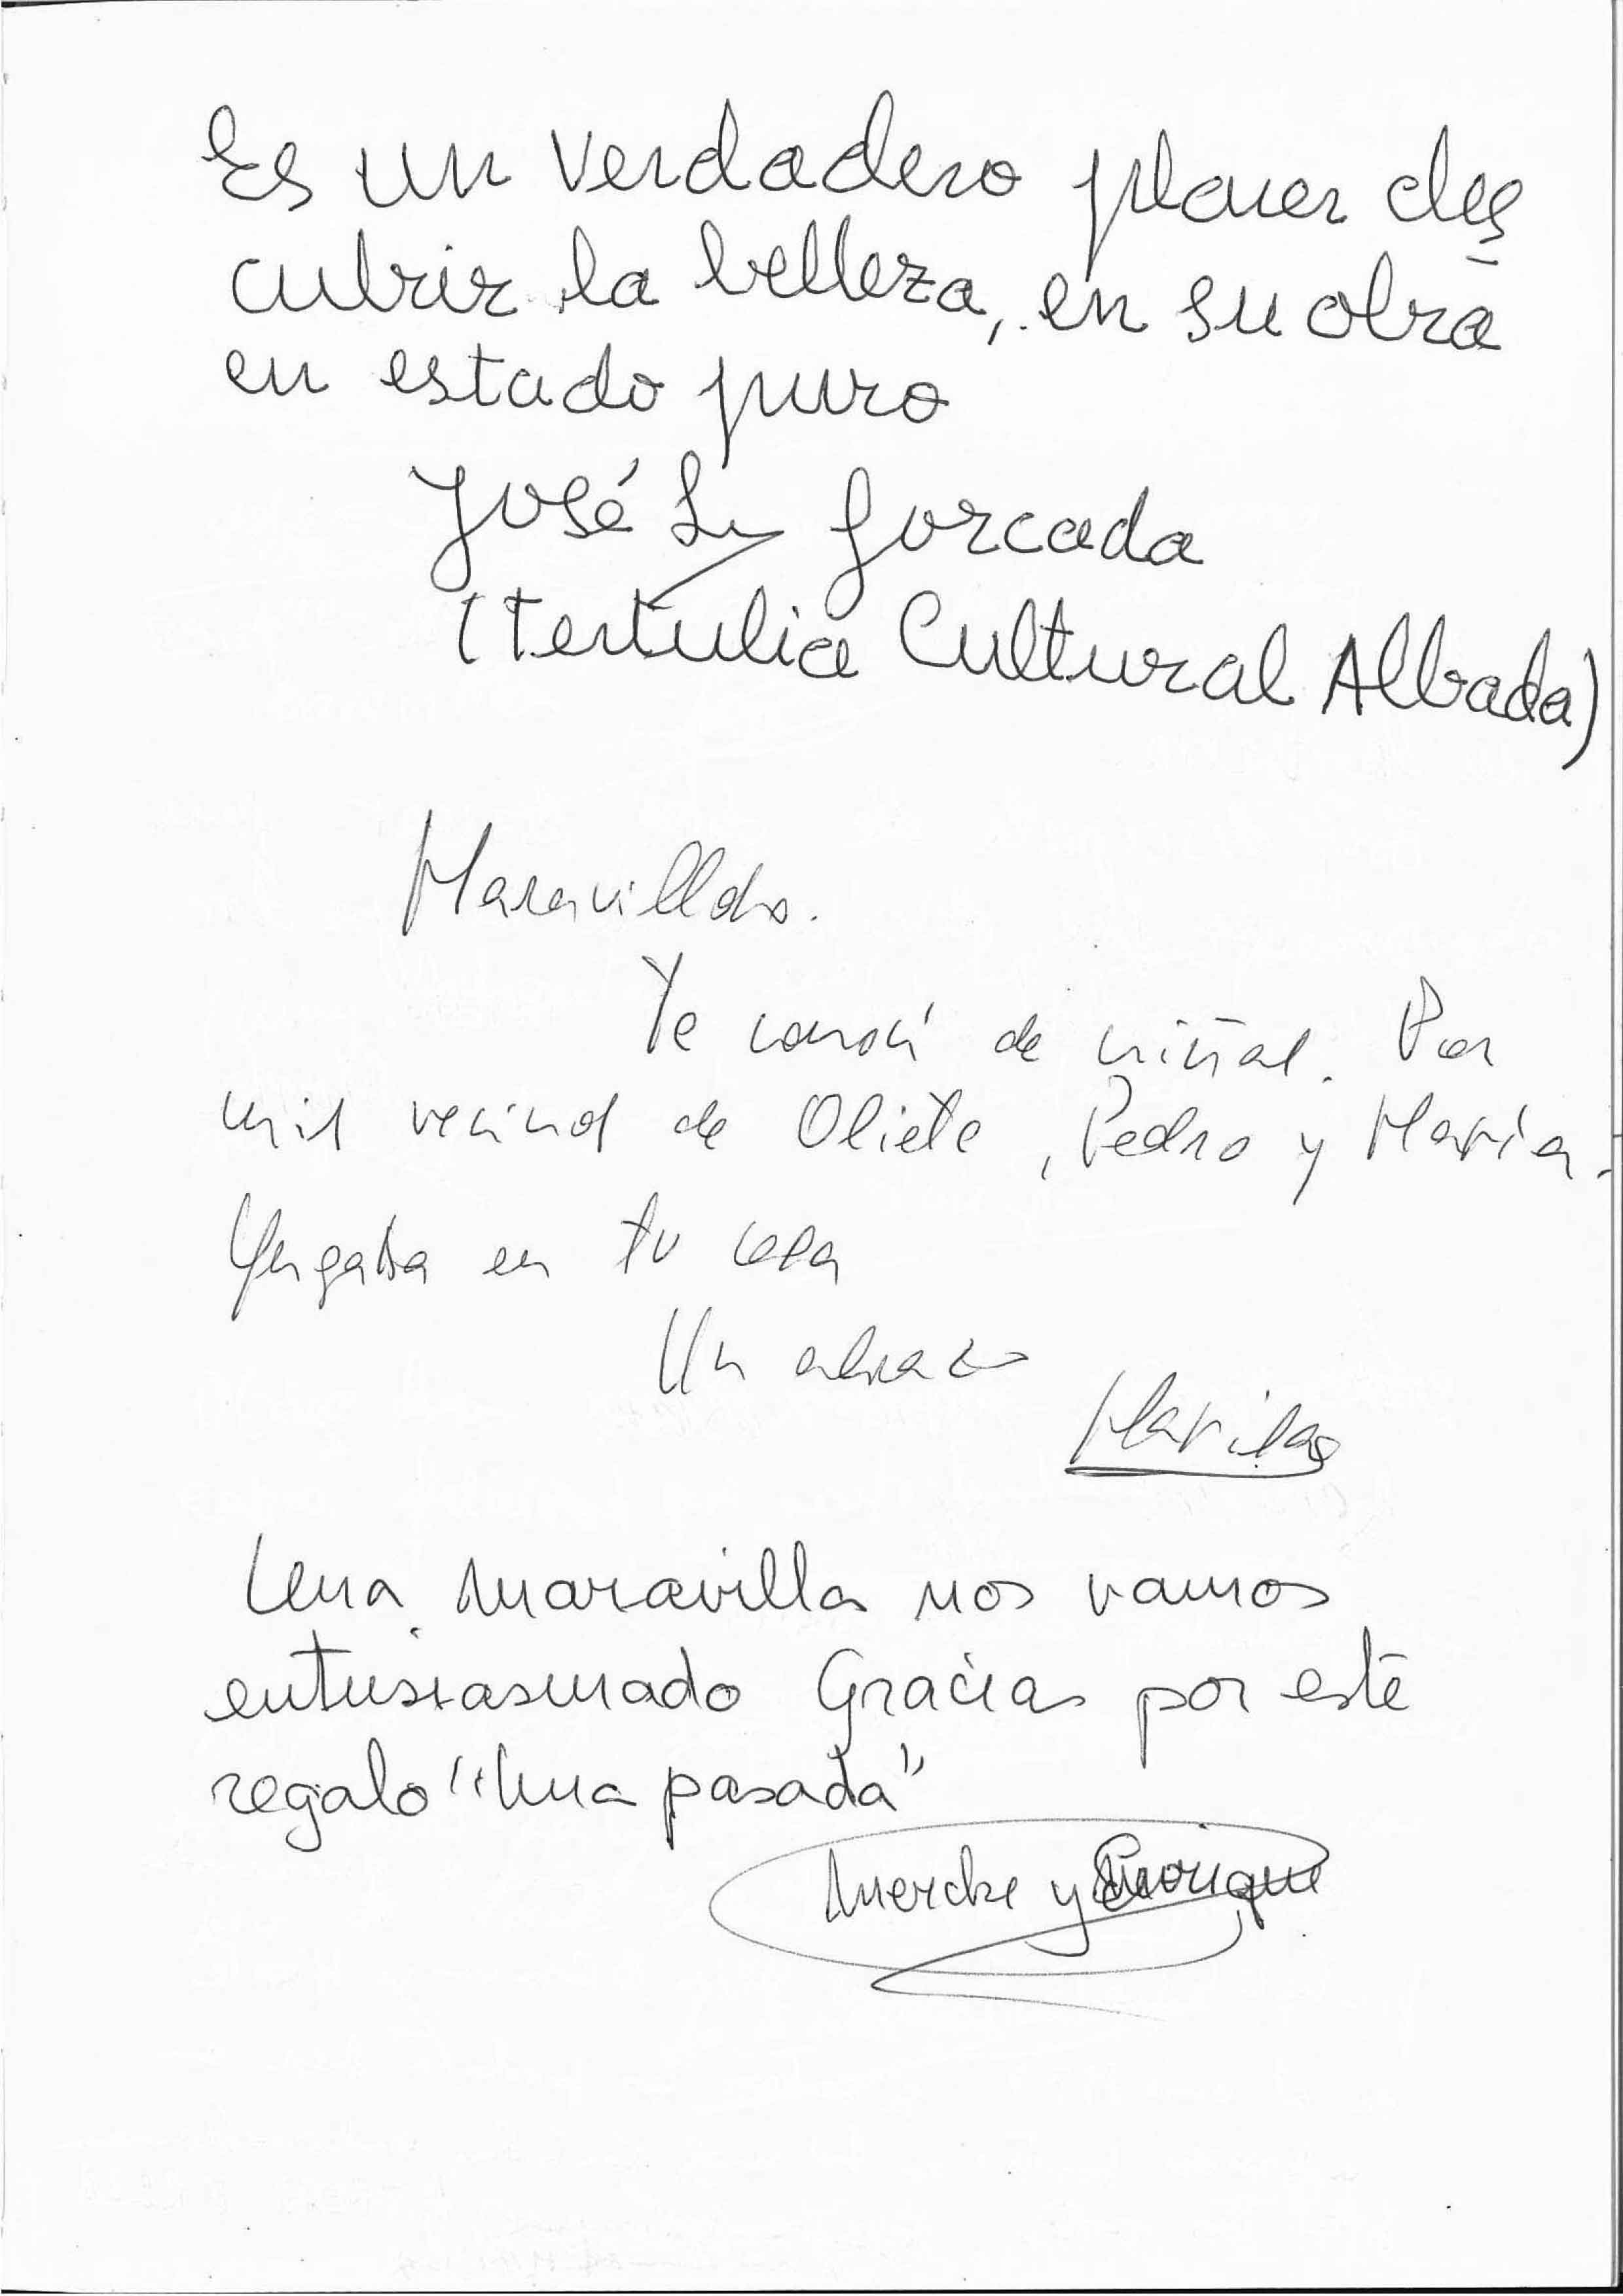 Es un verdadero placer des
cubrir la belleza, en su obra
en estado puro
José L. Forcada
(Tertulia Cultural Albada)
Maravilloso.
Te conocí de niñas. Por
mis vecinos de Oliete, Pedro y María.
Jugaba en tu casa
Un abrazo
Una maravilla nos vamos
entusiasmado Gracias por este
regalo "Una pasada"
Merche y Enrique